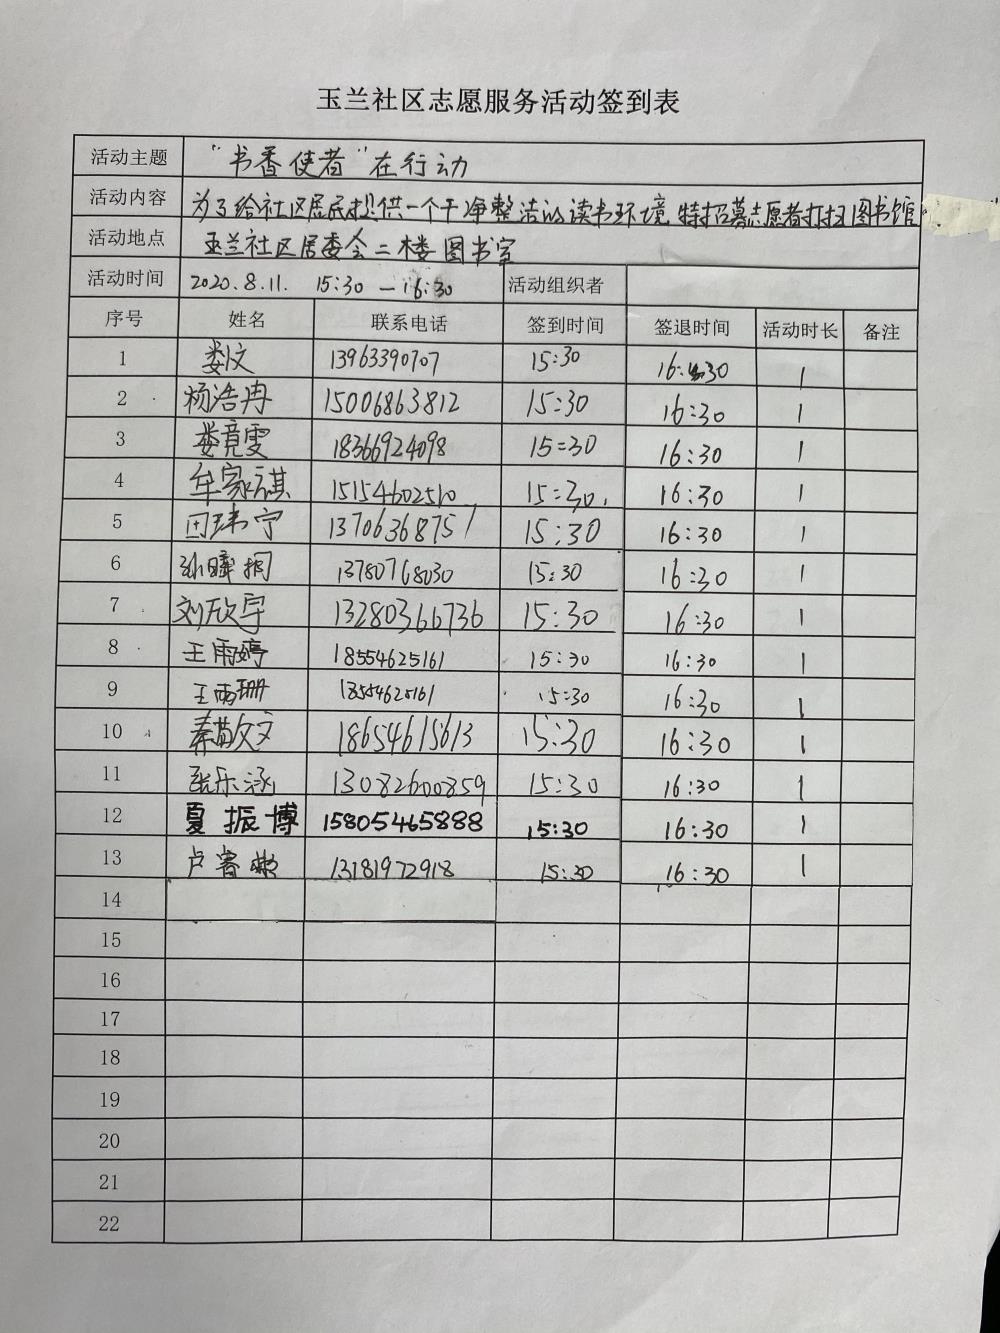 玉兰社区志愿服务活动签到表
活动主题 "书香使者"在行动
活动内容 为了给社区居民提供一个干净整洁的读书环境 特招募志愿者打扫图书馆
活动地点 玉兰社区居委会二楼图书室
活动时间 2020.8.11. 15:30 — 16:30 活动组织者
序号 姓名 联系电话 签到时间 签退时间 活动时长 备注
1 娄汶 13963390707 15:30 16:30 1
2 杨浩冉 15006863812 15:30 16:30 1
3 娄竟雯 18366924098 15:30 16:30 1
4 牟家祺 15154602510 15:30. 16:30 1
5 田玮宁 13706368757 15:30 16:30 1
6 孙 桐 13780768030 15:30 16:30 1
7 刘欣宇 13280366736 15:30 16:30 1
8 王雨婷 18554625161 15:30 16:30 1
9 王雨珊 18554625161 15:30 16:30 1
10 秦 文 18654615613 15:30 16:30 1
11 张乐涵 13082600859 15:30 16:30 1
12 夏振博 15805465888 15:30 16:30 1
13 卢睿 13181972918 15:30 16:30 1
14
15
16
17
18
19
20
21
22